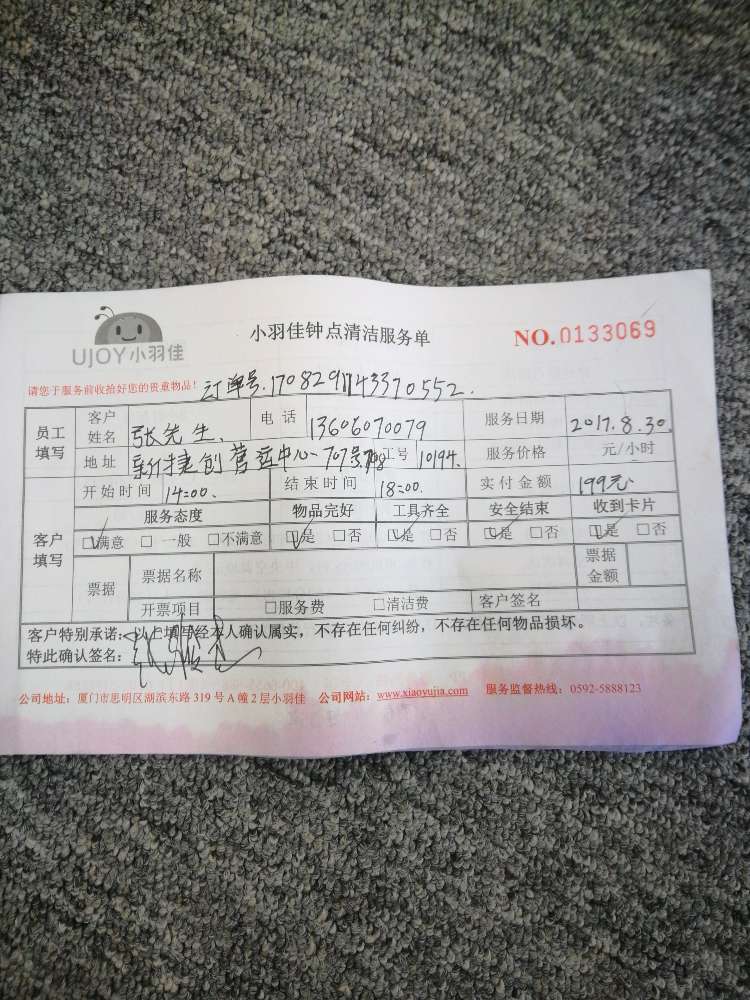 UJOY小羽佳
小羽佳钟点清洁服务单
NO.0133069
请您于服务前收拾好您的贵重物品!
订单号.170829143370552.
员工填写 客户姓名 张先生、 电话 13606070079 服务日期 2017.8.30.
地址 新捷创营运中心-707号 工号 10194. 服务价格 元/小时
开始时间 14:00. 结束时间 18:00. 实付金额 199元
客户填写 服务态度 物品完好 工具齐全 安全结束 收到卡片
☑满意 □一般 □不满意 ☑是 □否 ☑是 □否 ☑是 □否 ☑是 □否
票据 票据名称 票据金额
开票项目 □服务费 □清洁费 客户签名
客户特别承诺:以上填写经本人确认属实,不存在任何纠纷,不存在任何物品损坏。
特此确认签名:
公司地址:厦门市思明区湖滨东路 319 号 A 幢 2 层小羽佳 公司网站:www.xiaoyujia.com 服务监督热线:0592-5888123